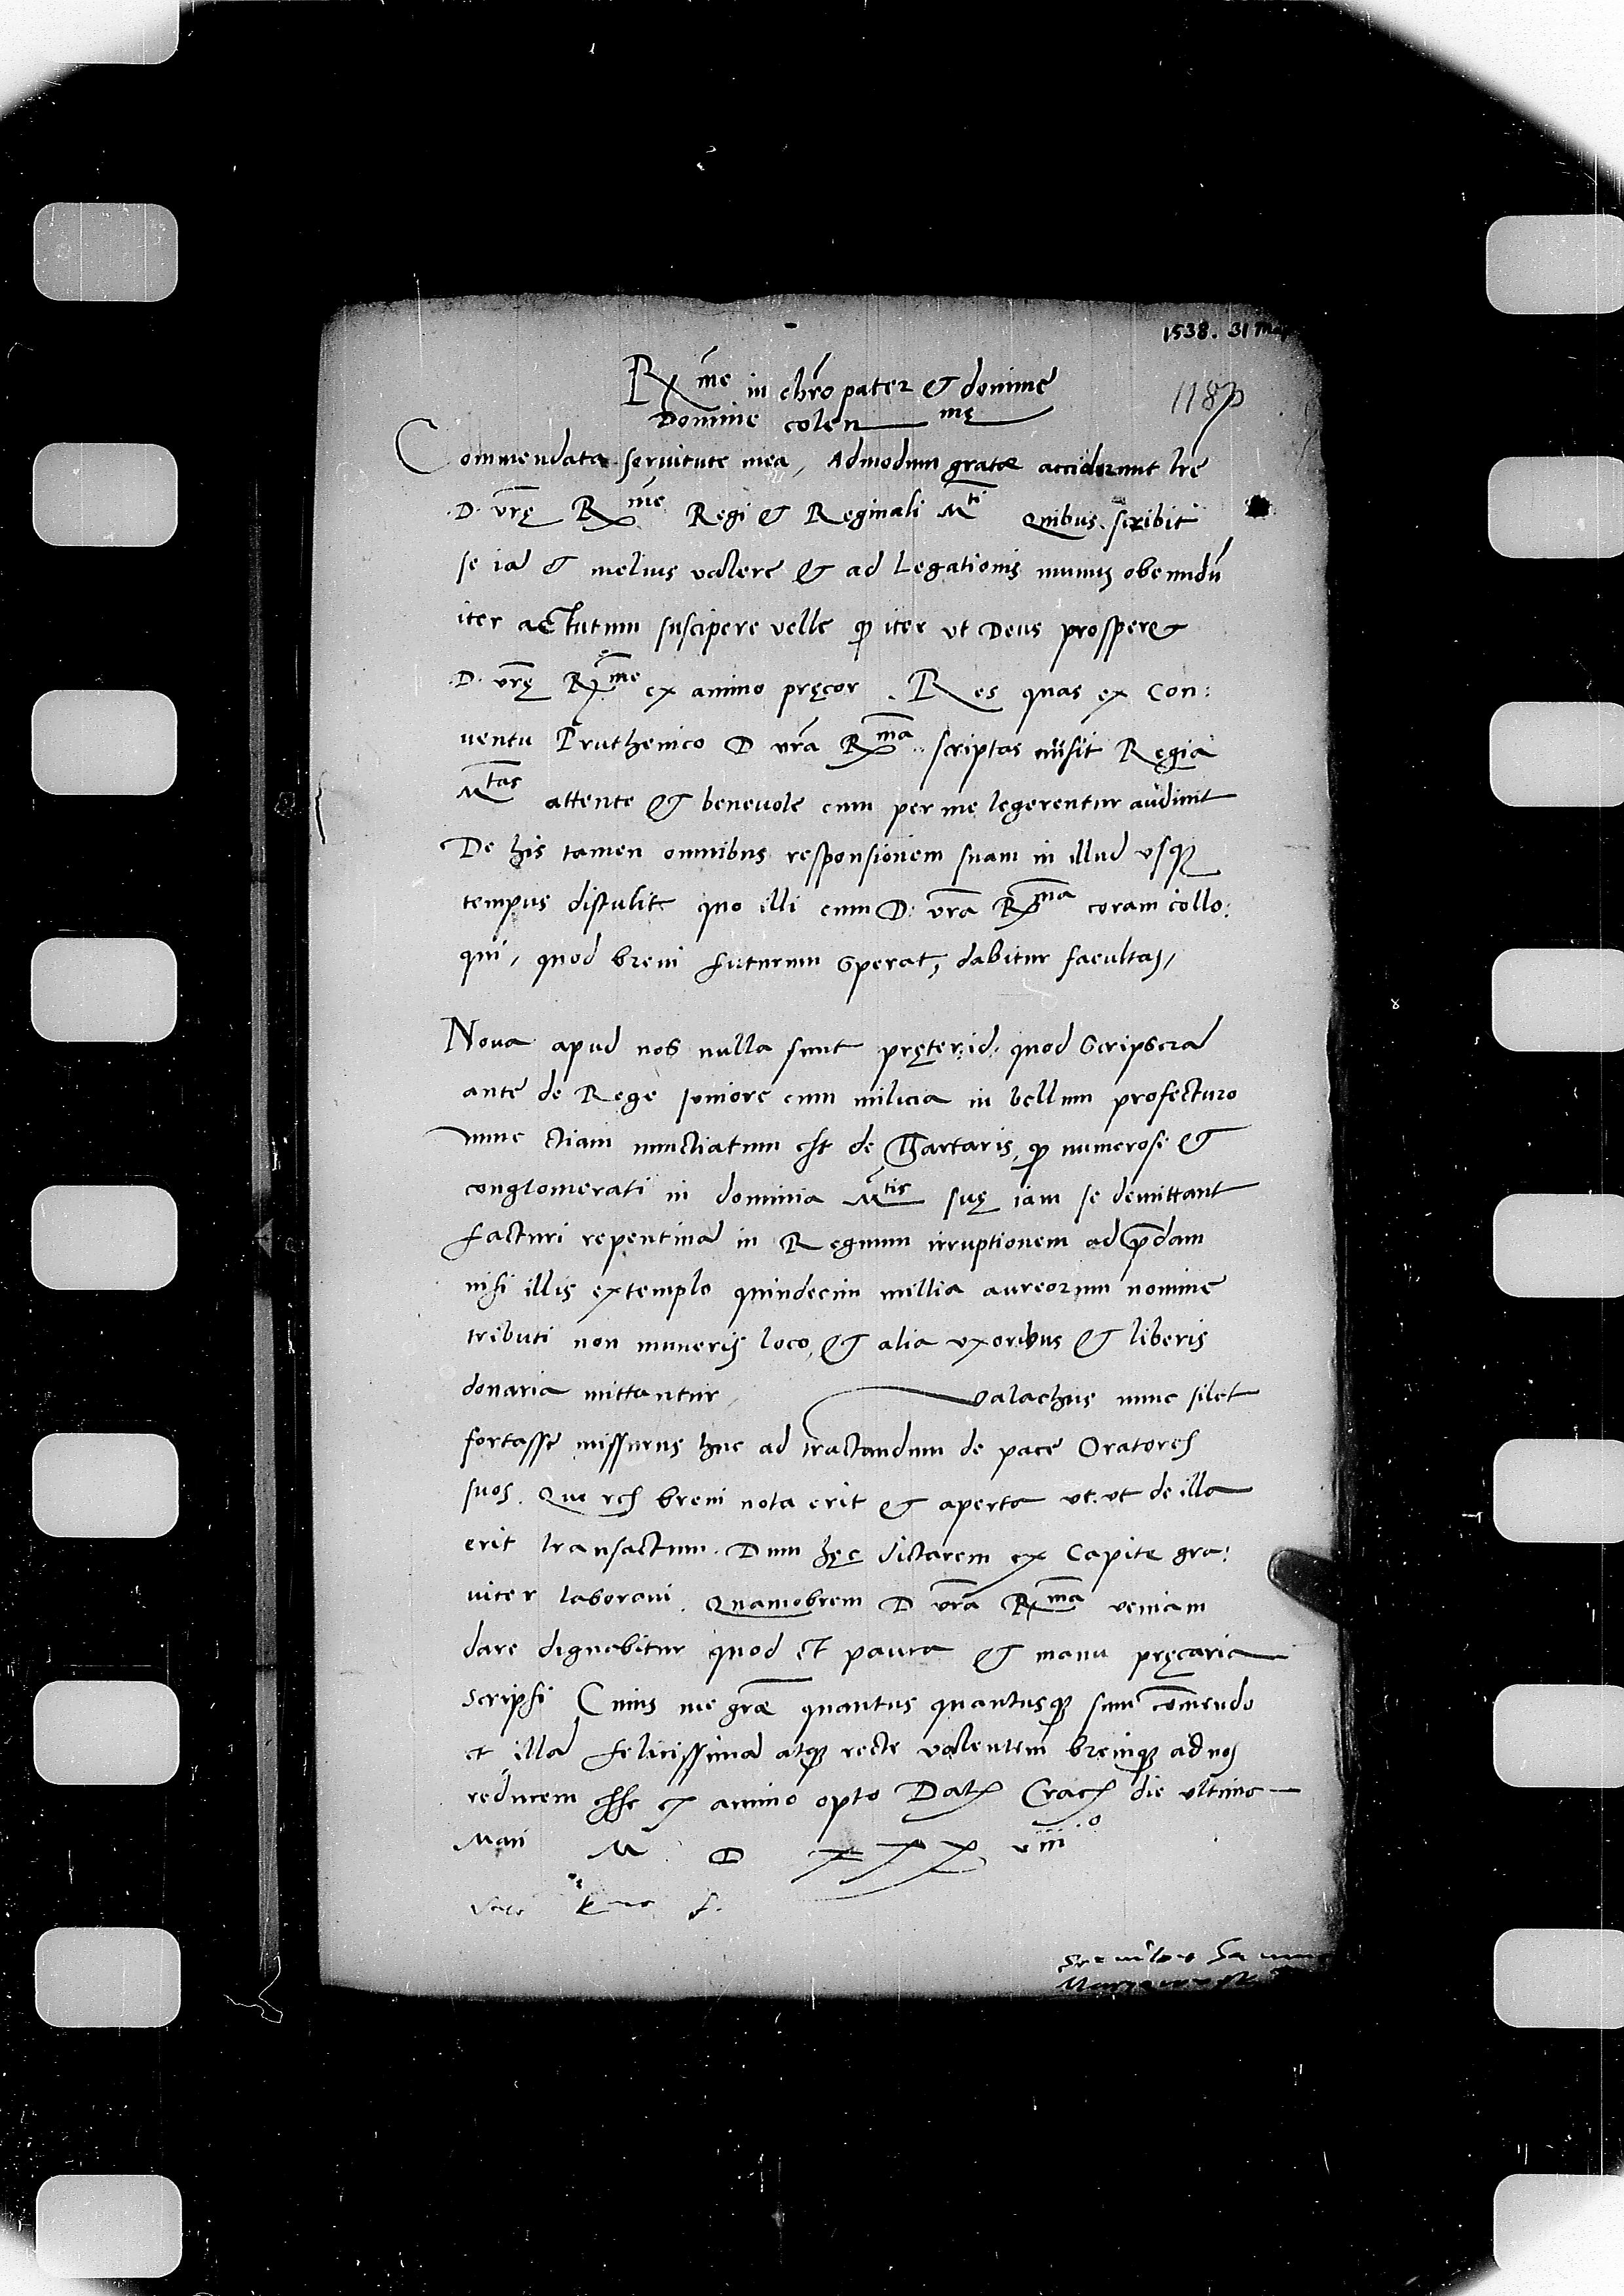 1538. 31 Maj
118
Rx̄me in chr̃o pater et domine
Domine colenme
Commendata seruitute mea, Admodum gratæ acciderunt lr̃e
D. vr̃ę Rx̄me Regi et Reginali Mti Quibus scribit
se iã et melius valere et ad Legationis munus obeundũ
iter actutum suscipere velle qd iter vt Deus prosperet
D. vr̃ę Rx̄me ex animo pręcor. Res quas ex Con:
uentu Pruthenico D vr̃a Rx̄ma scriptas misit Regia
Mtas attente et beneuole cum per me legerentur audiuit
De his tamen omnibus responsionem suam in illud vsqȝ
tempus distulit quo illi cum D: vr̃a Rx̄ma coram collo:
qui, quod breui futurum sperat, dabitur facultas,
Noua apud nos nulla sunt pręter id quod scripserã
ante de Rege Iuniore cum milicia in bellum profecturo
nunc etiam nunctiatum est de Thartaris, qd numerose et
conglomerati in dominia Mtis suę iam se demittant
facturi repentinã in Regnum irruptionem ad p̃dam
nisi illis extemplo quindecim millia aureorum nomine
tributi non muneris loco, et alia vxoribus et liberis
donaria mittantur, Valachus nunc silet
fortasse missurus huc ad tractandum de pace Oratores
suos. Que res breui nota erit et aperta vt vt de illa
erit transactum. Dum hęc dictarem ex Capite gra:
uiter laboraui. Quamobrem D vr̃a Rx̄ma veniam
dare dignabitur quod et pauca et manu pręcaria
scripsi Cuius me gr̃æ quantus quantusqȝ sum cõmendo
et illã felicissimã atqȝ recte valentem breuiqȝ ad nos
reducem esse ex animo opto Datȝ Cracȝ die vltimo
Maii M D XXX viii.o